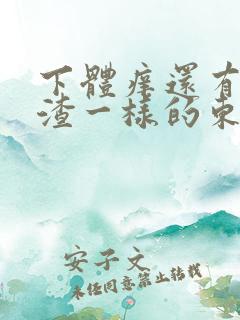 下體癢還有
渣一樣的東
安子文
未經同意禁止轉載